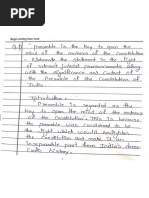 Q.1) Preamble is the key to open the
mind of the makers of the Constitution
- Elaborate the statement in the light
of relevant judicial pronouncements along
with the significance and content of
the Preamble of the Constitution of
India.
Introduction :-
Preamble is regarded as the
key to open the mind of the makers
of the Constitution. This is because
the preamble was considered to be
the light which would enlighten
the constitution and make it an
inseparable part from India's demo
cratic history.